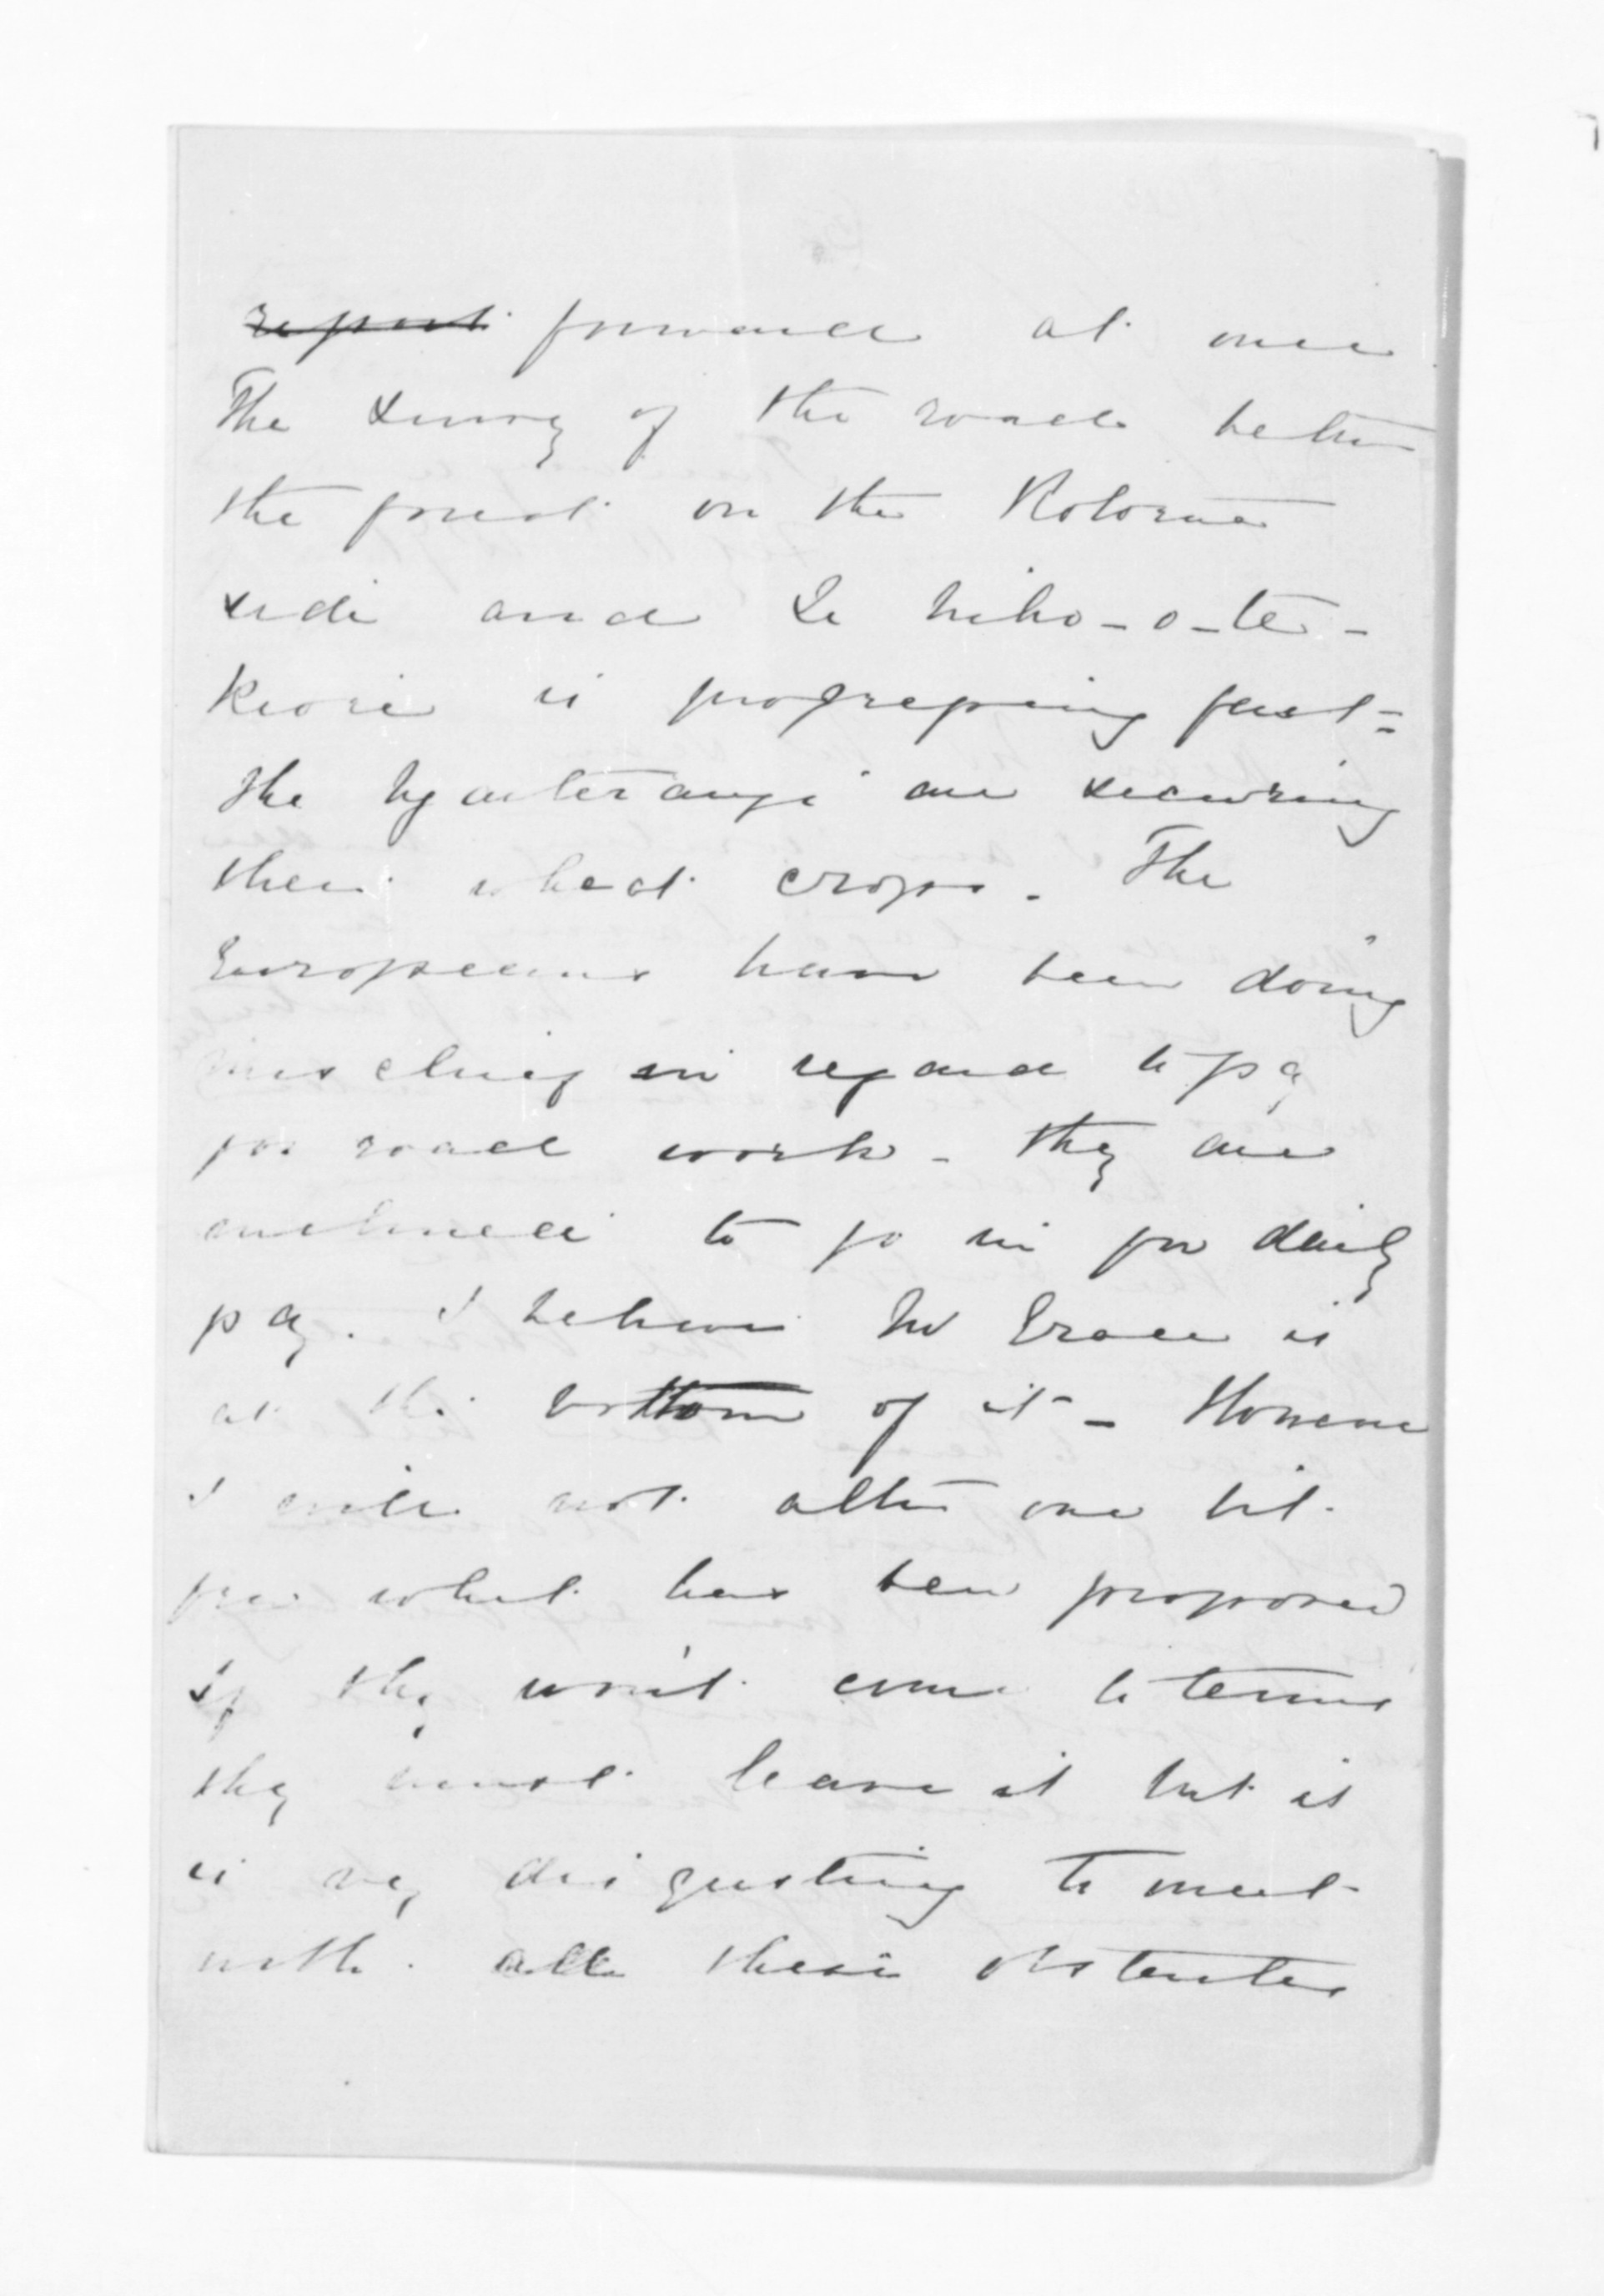 report forward at once
The survey of the road between
the forest on the Rotorua
side and Te Niho-o-te-
Kiore is progressing fast -
The Ngaiterangi are securing
their wheat crops. The
Europeans have been doing
mischief in regard to pay
for road work - they are
inclined to go in for daily
pay. I believe Mr is
at the bottom of it - However
I will not alter one bit
from what has been proposed
If they won't come to terms
they must leave it but it
is very disgusting to meet
with all these obstacles